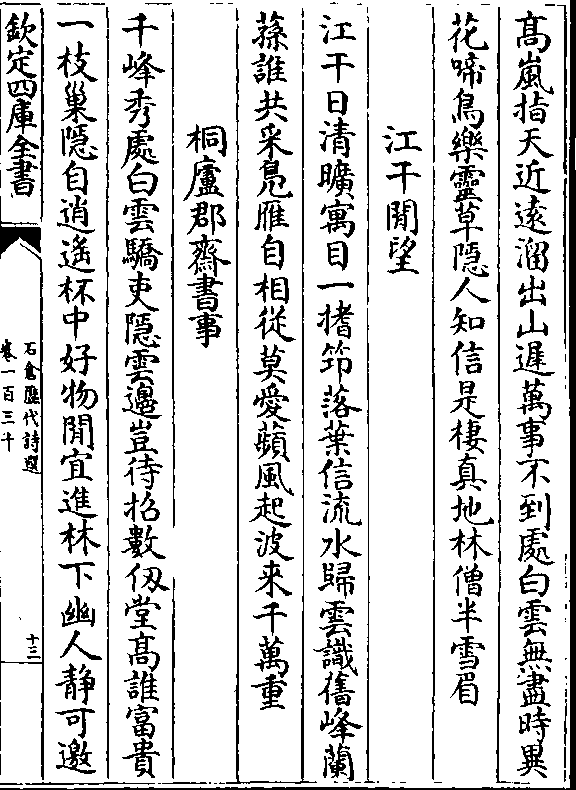 髙嵐指天近遠溜出山遲萬事不到處白雲無盡時異
花啼鳥樂靈草隠人知信是棲真地林僧半雪眉
江干閒望
江干日清曠寓目一搘筇落葉信流水歸雲識舊峰蘭
蓀誰共采鳬雁自相從莫愛蘋風起波来千萬重
桐廬郡齋書事
千峰秀處白雲驕吏隠雲邊豈待招數仭堂髙誰富貴
一枝巢隠自逍遙杯中好物閒宜進林下幽人靜可邀
欽定四庫全書
石倉歴代詩選
卷一百三十
十三